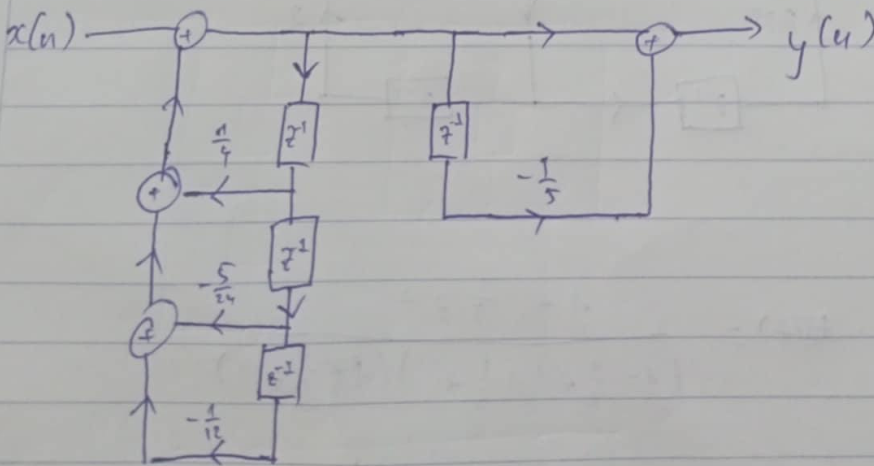 x(n) + + y(n)
z⁻¹ z⁻¹
1/4
+
-1/5
z⁻¹
-5/24
+
z⁻¹
-1/12